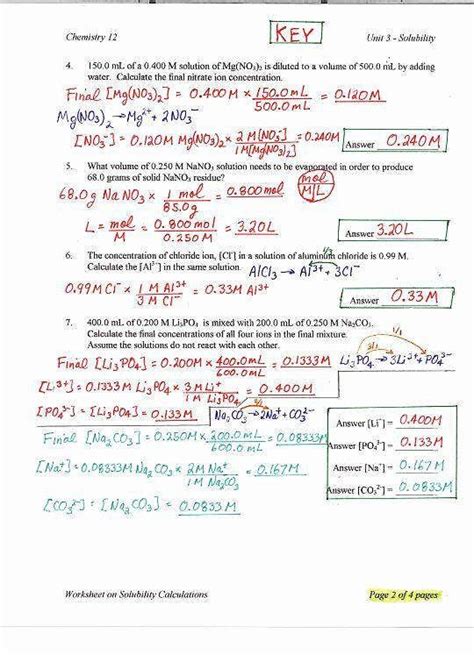 Chemistry 12
KEY
Unit 3 - Solubility
4. 150.0 mL of a 0.400 M solution of Mg(NO₃)₂ is diluted to a volume of 500.0 mL by adding
water. Calculate the final nitrate ion concentration.
Final [Mg(NO₃)₂] = 0.400 M × 150.0 mL / 500.0 mL = 0.120 M
Mg(NO₃)₂ → Mg²⁺ + 2NO₃⁻
[NO₃⁻] = 0.120 M Mg(NO₃)₂ × 2 M [NO₃⁻] / 1M [Mg(NO₃)₂] = 0.240 M
Answer 0.240 M
5. What volume of 0.250 M NaNO₃ solution needs to be evaporated in order to produce
68.0 grams of solid NaNO₃ residue?
68.0 g NaNO₃ × 1 mol / 85.0 g = 0.800 mol
mol
M L
L = mol / M = 0.800 mol / 0.250 M = 3.20 L
Answer 3.20 L
6. The concentration of chloride ion, [Cl⁻] in a solution of aluminum chloride is 0.99 M.
1/3
Calculate the [Al³⁺] in the same solution.
AlCl₃ → Al³⁺ + 3Cl⁻
0.99 M Cl⁻ × 1 M Al³⁺ / 3 M Cl⁻ = 0.33 M Al³⁺
Answer 0.33 M
7. 400.0 mL of 0.200 M Li₃PO₄ is mixed with 200.0 mL of 0.250 M Na₂CO₃.
Calculate the final concentrations of all four ions in the final mixture.
Assume the solutions do not react with each other.
1/1
3/1
Final [Li₃PO₄] = 0.200 M × 400.0 mL / 600.0 mL = 0.1333 M
Li₃PO₄ → 3Li³⁺ + PO₄³⁻
[Li³⁺] = 0.1333 M Li₃PO₄ × 3 M Li⁺ / 1 M Li₃PO₄ = 0.400 M
[PO₄³⁻] = [Li₃PO₄] = 0.133 M
Na₂CO₃ → 2Na⁺ + CO₃²⁻
Answer [Li⁺] = 0.400 M
Final [Na₂CO₃] = 0.250 M × 200.0 mL / 600.0 mL = 0.08333 M
Answer [PO₄³⁻] = 0.133 M
[Na⁺] = 0.08333 M Na₂CO₃ × 2 M Na⁺ / 1 M Na₂CO₃ = 0.167 M
Answer [Na⁺] = 0.167 M
Answer [CO₃²⁻] = 0.0833 M
[CO₃²⁻] = [Na₂CO₃] = 0.0833 M
Worksheet on Solubility Calculations
Page 2 of 4 pages